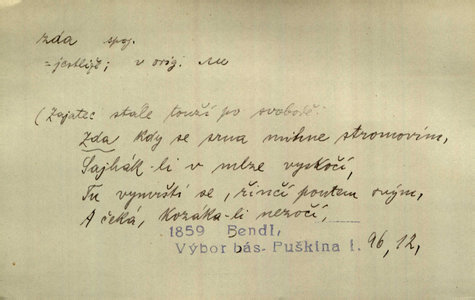 zda spoj.
= jestliže; v orig. ли
(Zajatec stále touží po svobodě:
Zda kdy se srna mihne stromovím,
Sajhák-li v mlze vyskočí,
Tu vymrští se, řinčí poutem svým,
A čeká, kozáka-li nezočí,
1859 Bendl,
Výbor bás. Puškina I. 96, 12,